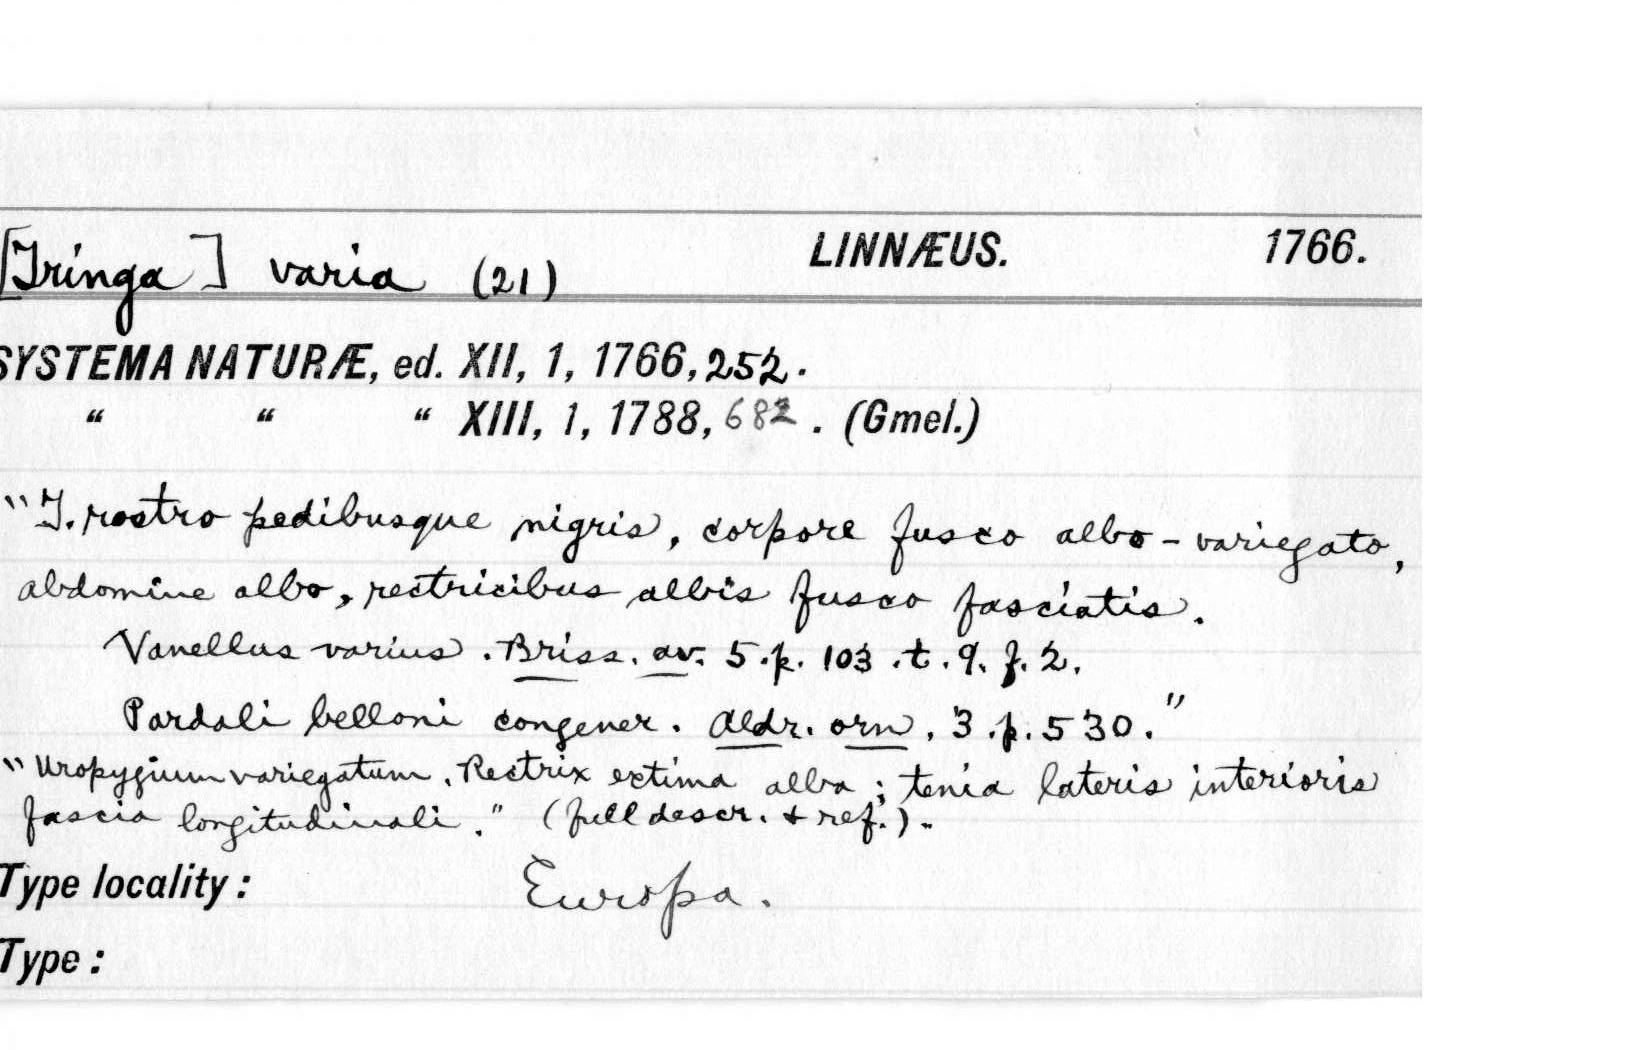 [Tringa] varia (21) LINNÆUS. 1766.
SYSTEMA NATURÆ, ed. XII, 1, 1766, 252.
“ “ “ XIII, 1, 1788, 682. (Gmel.)
"T. rostro pedibusque nigris, corpore fusco albo-variegato,
abdomine albo, rectricibus albis fusco fasciatis.
Vanellus varius. Briss. av. 5. p. 103. t. 9. f. 2.
Pardali belloni congener. Aldr. orn. 3. p. 530."
"Uropygium variegatum. Rectrix extima alba; tenia lateris interioris
fascia longitudinali." (full descr. & ref.).
Type locality: Europa.
Type: